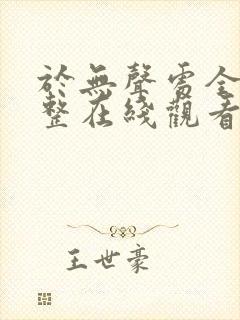 於無聲處全
整在綫觀看
王世豪